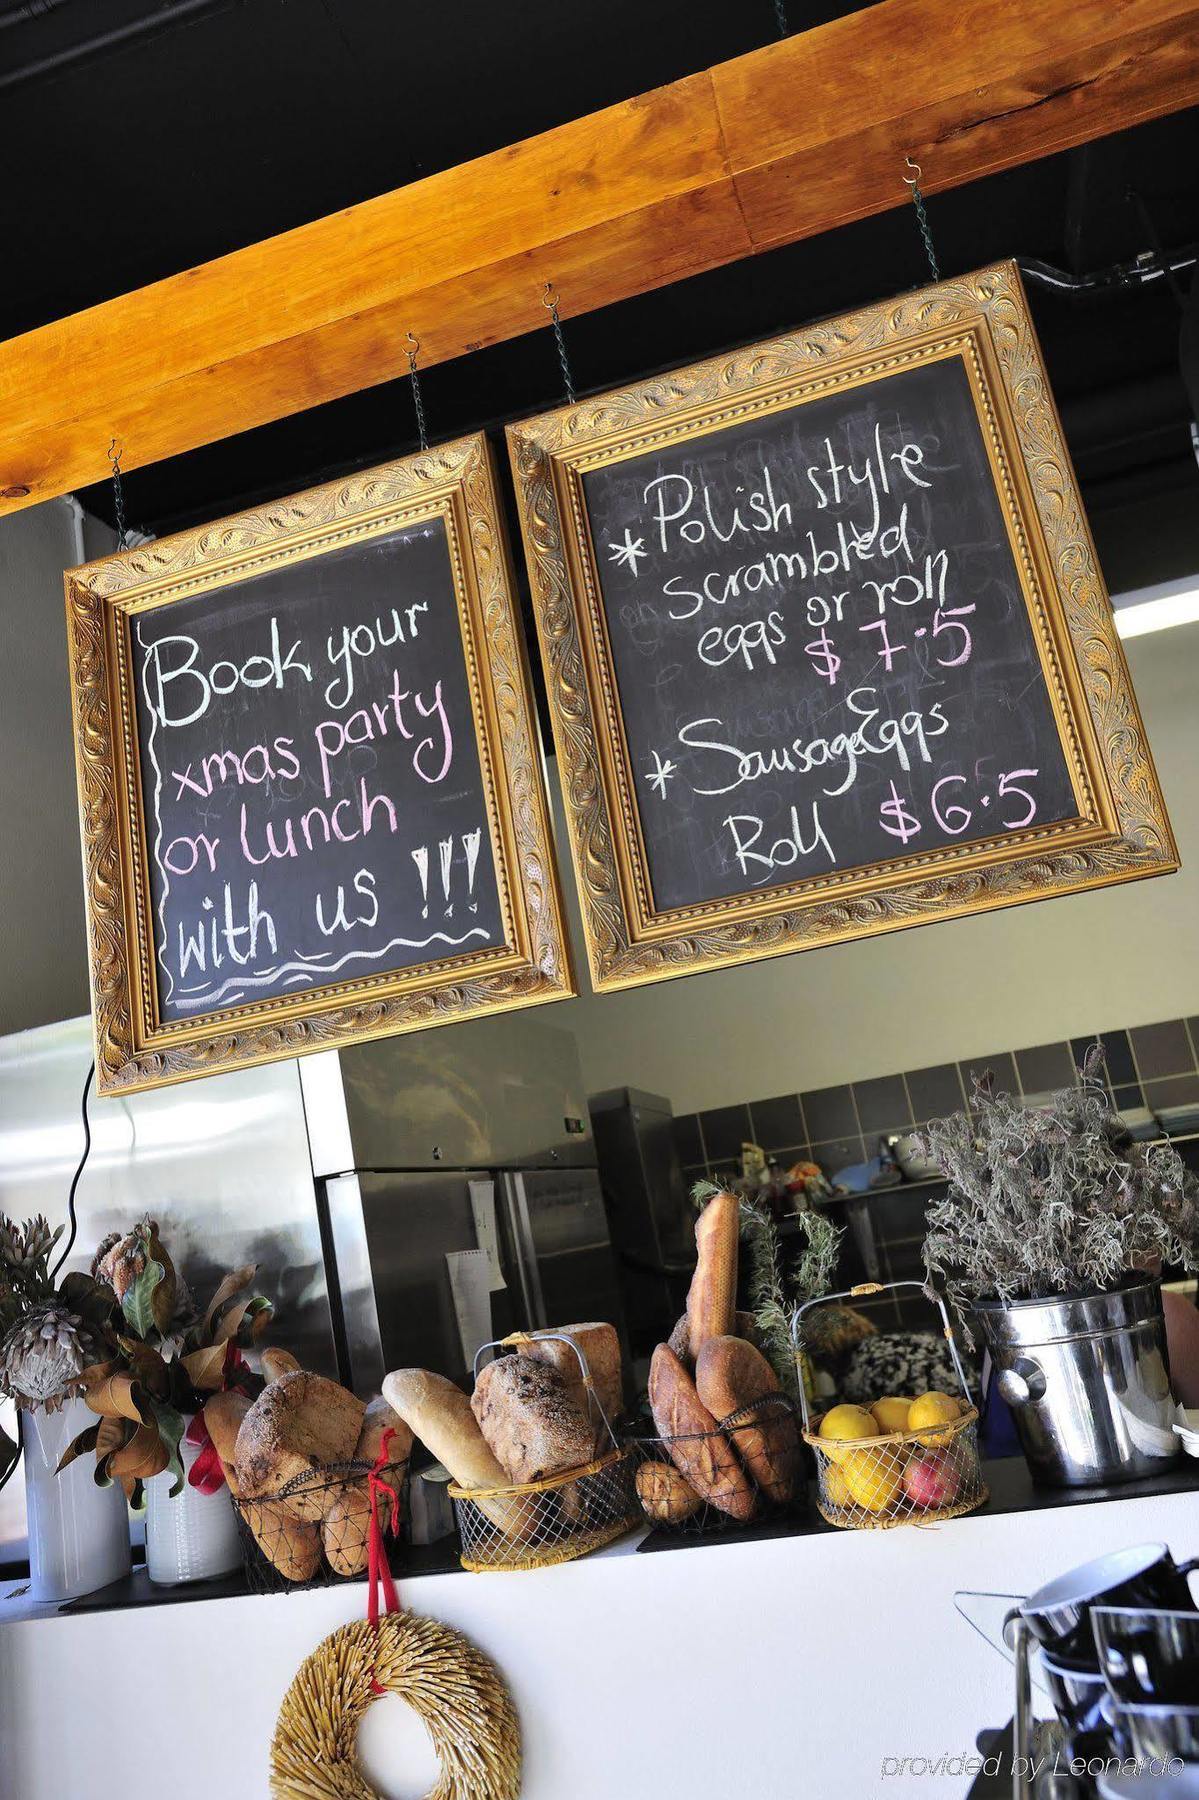 Book your
xmas party
or lunch
with us !!!
* Polish style
scrambled
eggs or roll
$ 7.5
* Sausage Eggs
Roll $6.5
provided by Leonardo